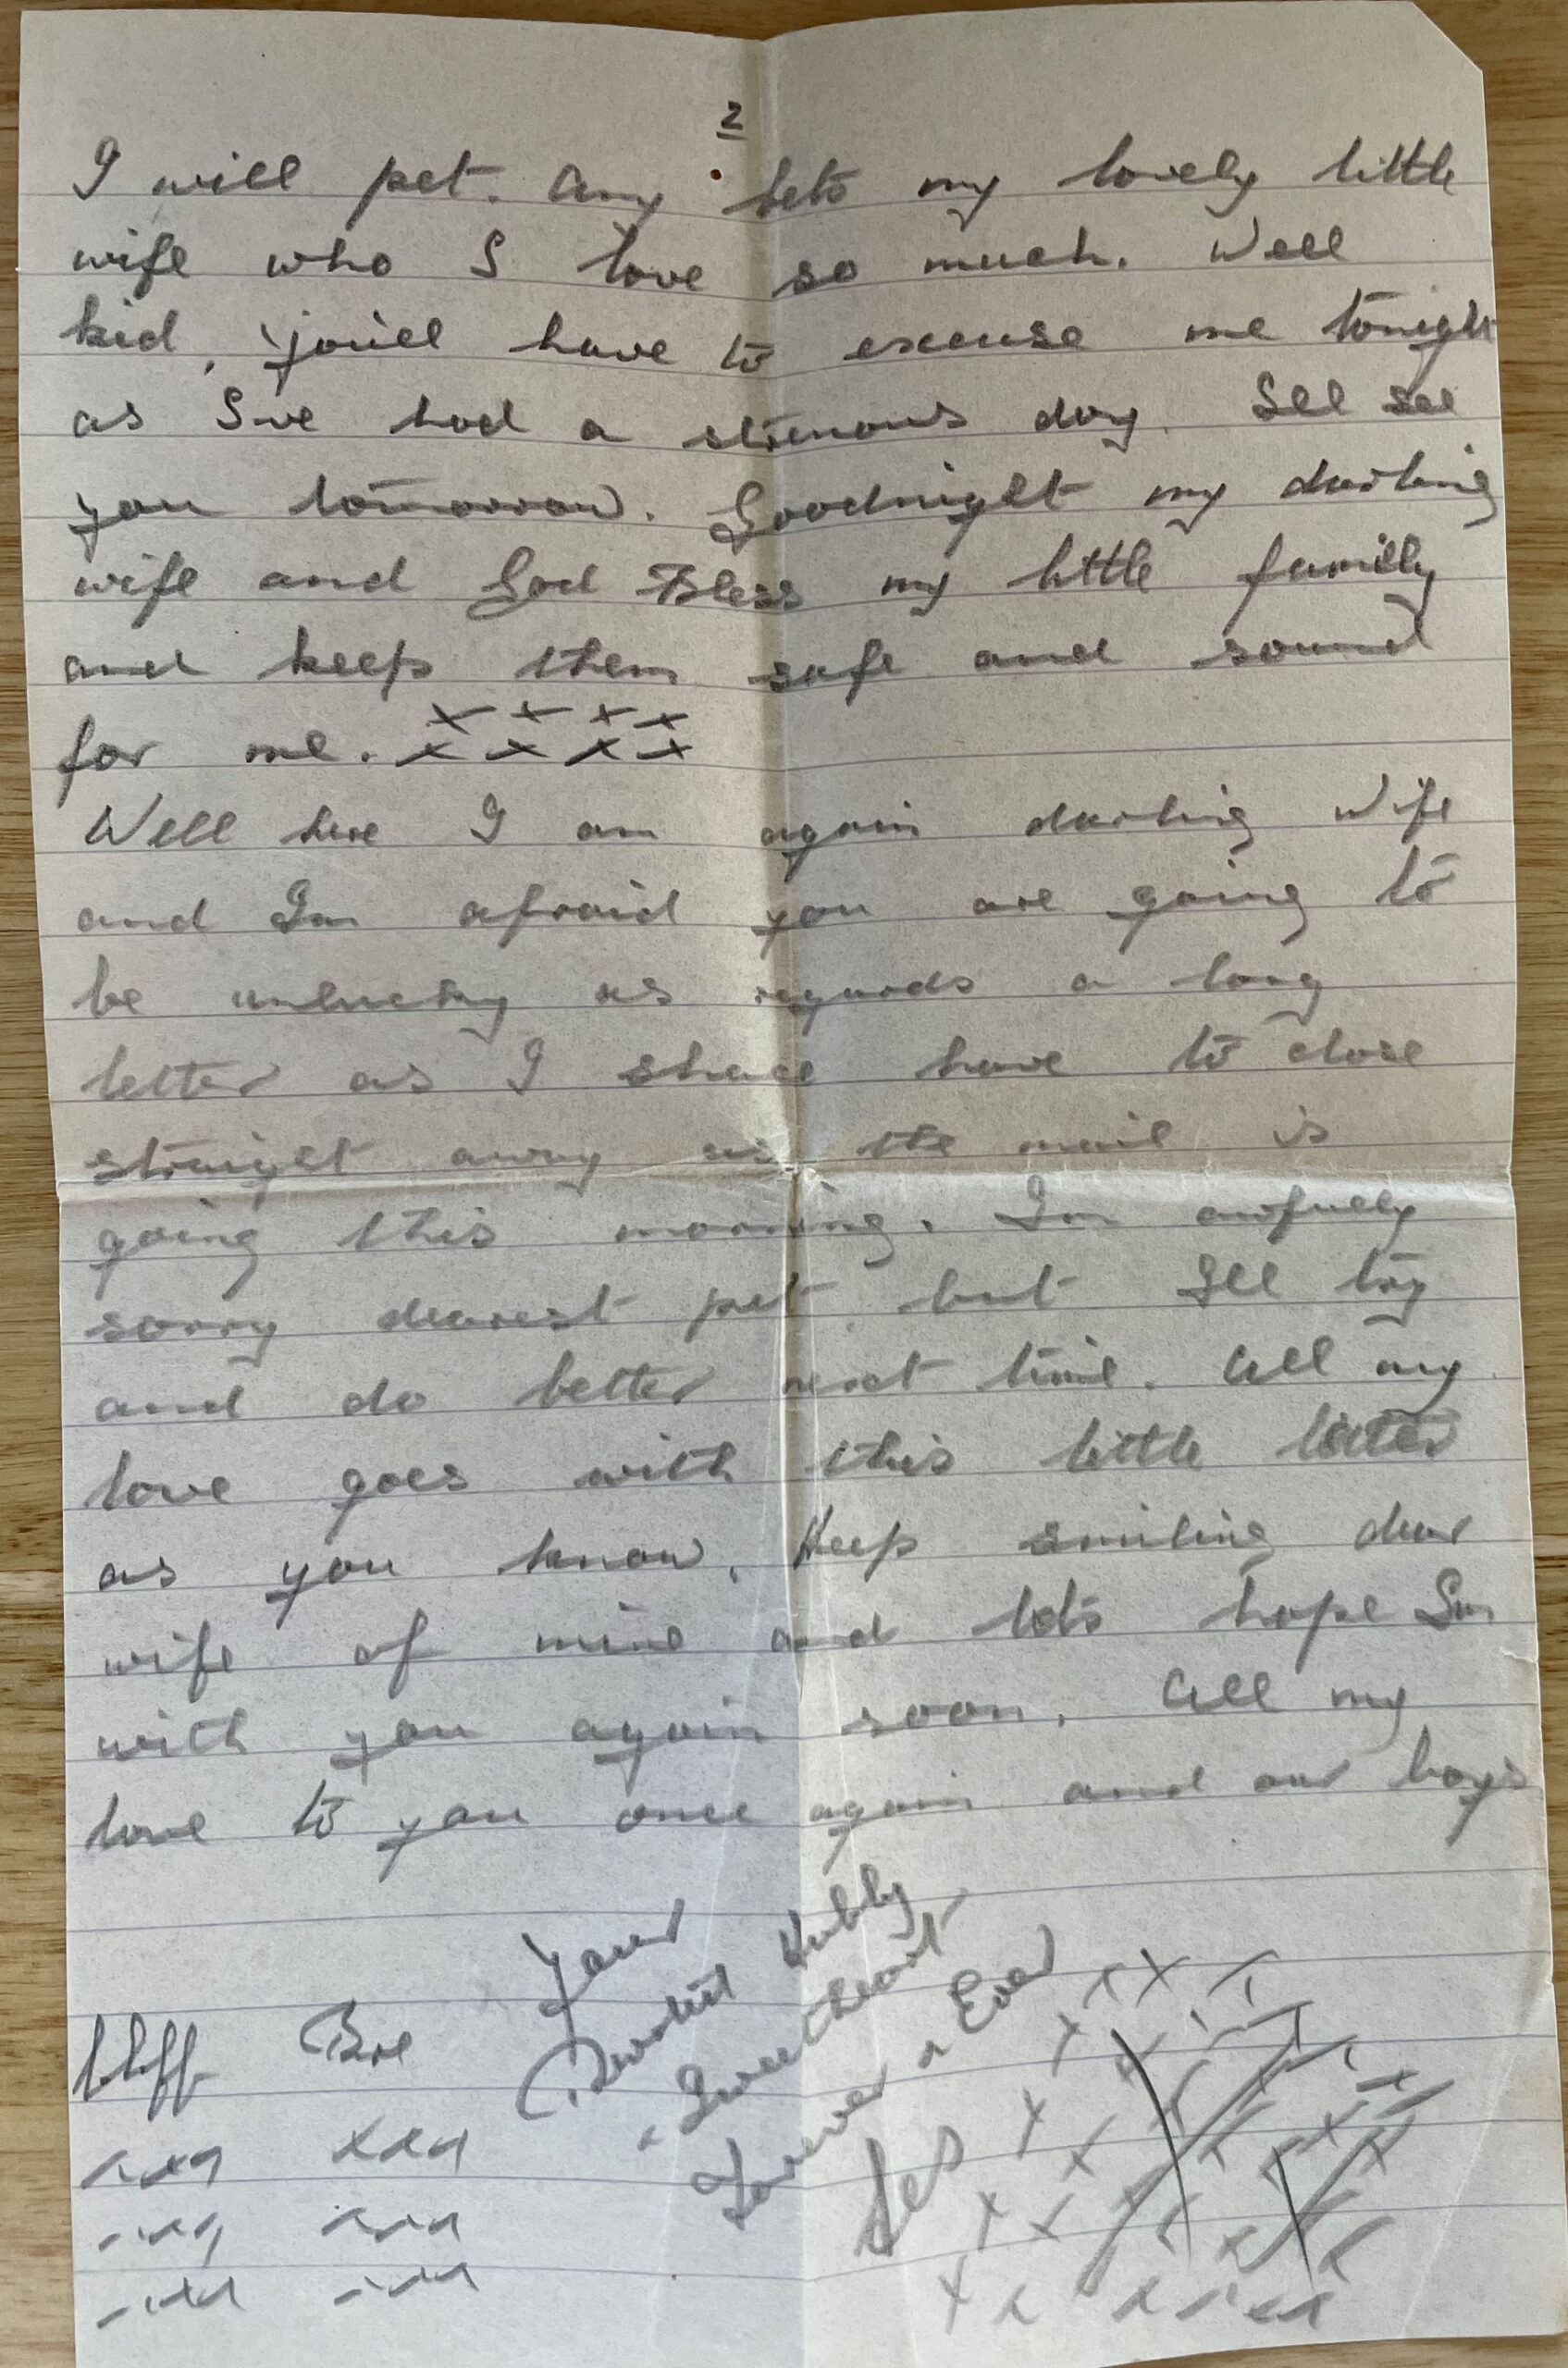 2
I will pet. Any bets my lovely little
wife who I love so much. Well
kid, you'll have to excuse me tonight
as I've had a strenous day. I'll see
you tomorrow. Goodnight my darling
wife and God Bless my little family
and keep them safe and sound
for me. x x x x
x x x x
Well here I am again darling wife
and I'm afraid you are going to
be unlucky as regards a long
letter as I shall have to close
straight away as the mail is
going this morning. I'm awfully
sorry dearest pet but I'll try
and do better next time. All my
love goes with this little letter
as you know. Keep smiling dear
wife of mine and lets hope I'm
with you again soon. All my
love to you once again and our boys
Your
Devoted Hubby
& Sweetheart
Forever & Ever
Les
Cliff
xxx
xxx
xxx
xxx
xxx
xxx